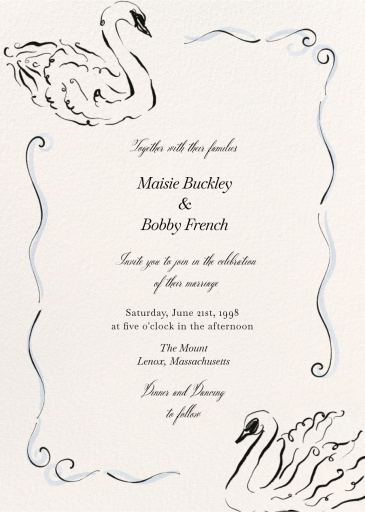 Together with their families
Maisie Buckley
&
Bobby French
Invite you to join in the celebration
of their marriage
Saturday, June 21st, 1998
at five o'clock in the afternoon
The Mount
Lenox, Massachusetts
Dinner and Dancing
to follow